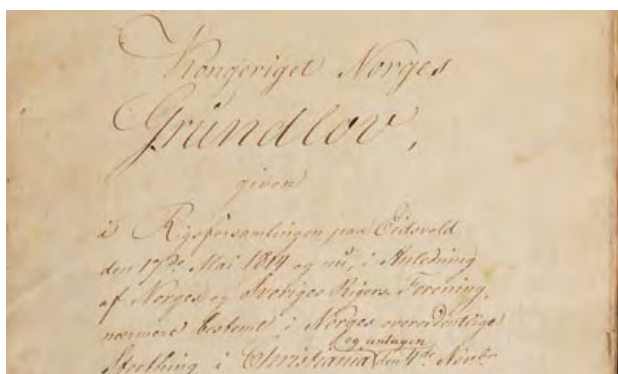 Kongeriget Norges
Grundlov,
given
i Rigsforsamlingen paa Eidsvold
den 17de Mai 1814 og nu, i Anledning
af Norges og Sveriges Rigers Forening,
nærmere bestemt i Norges overordentlige
og antagen
Storthing i Christiania den 4de Novbr